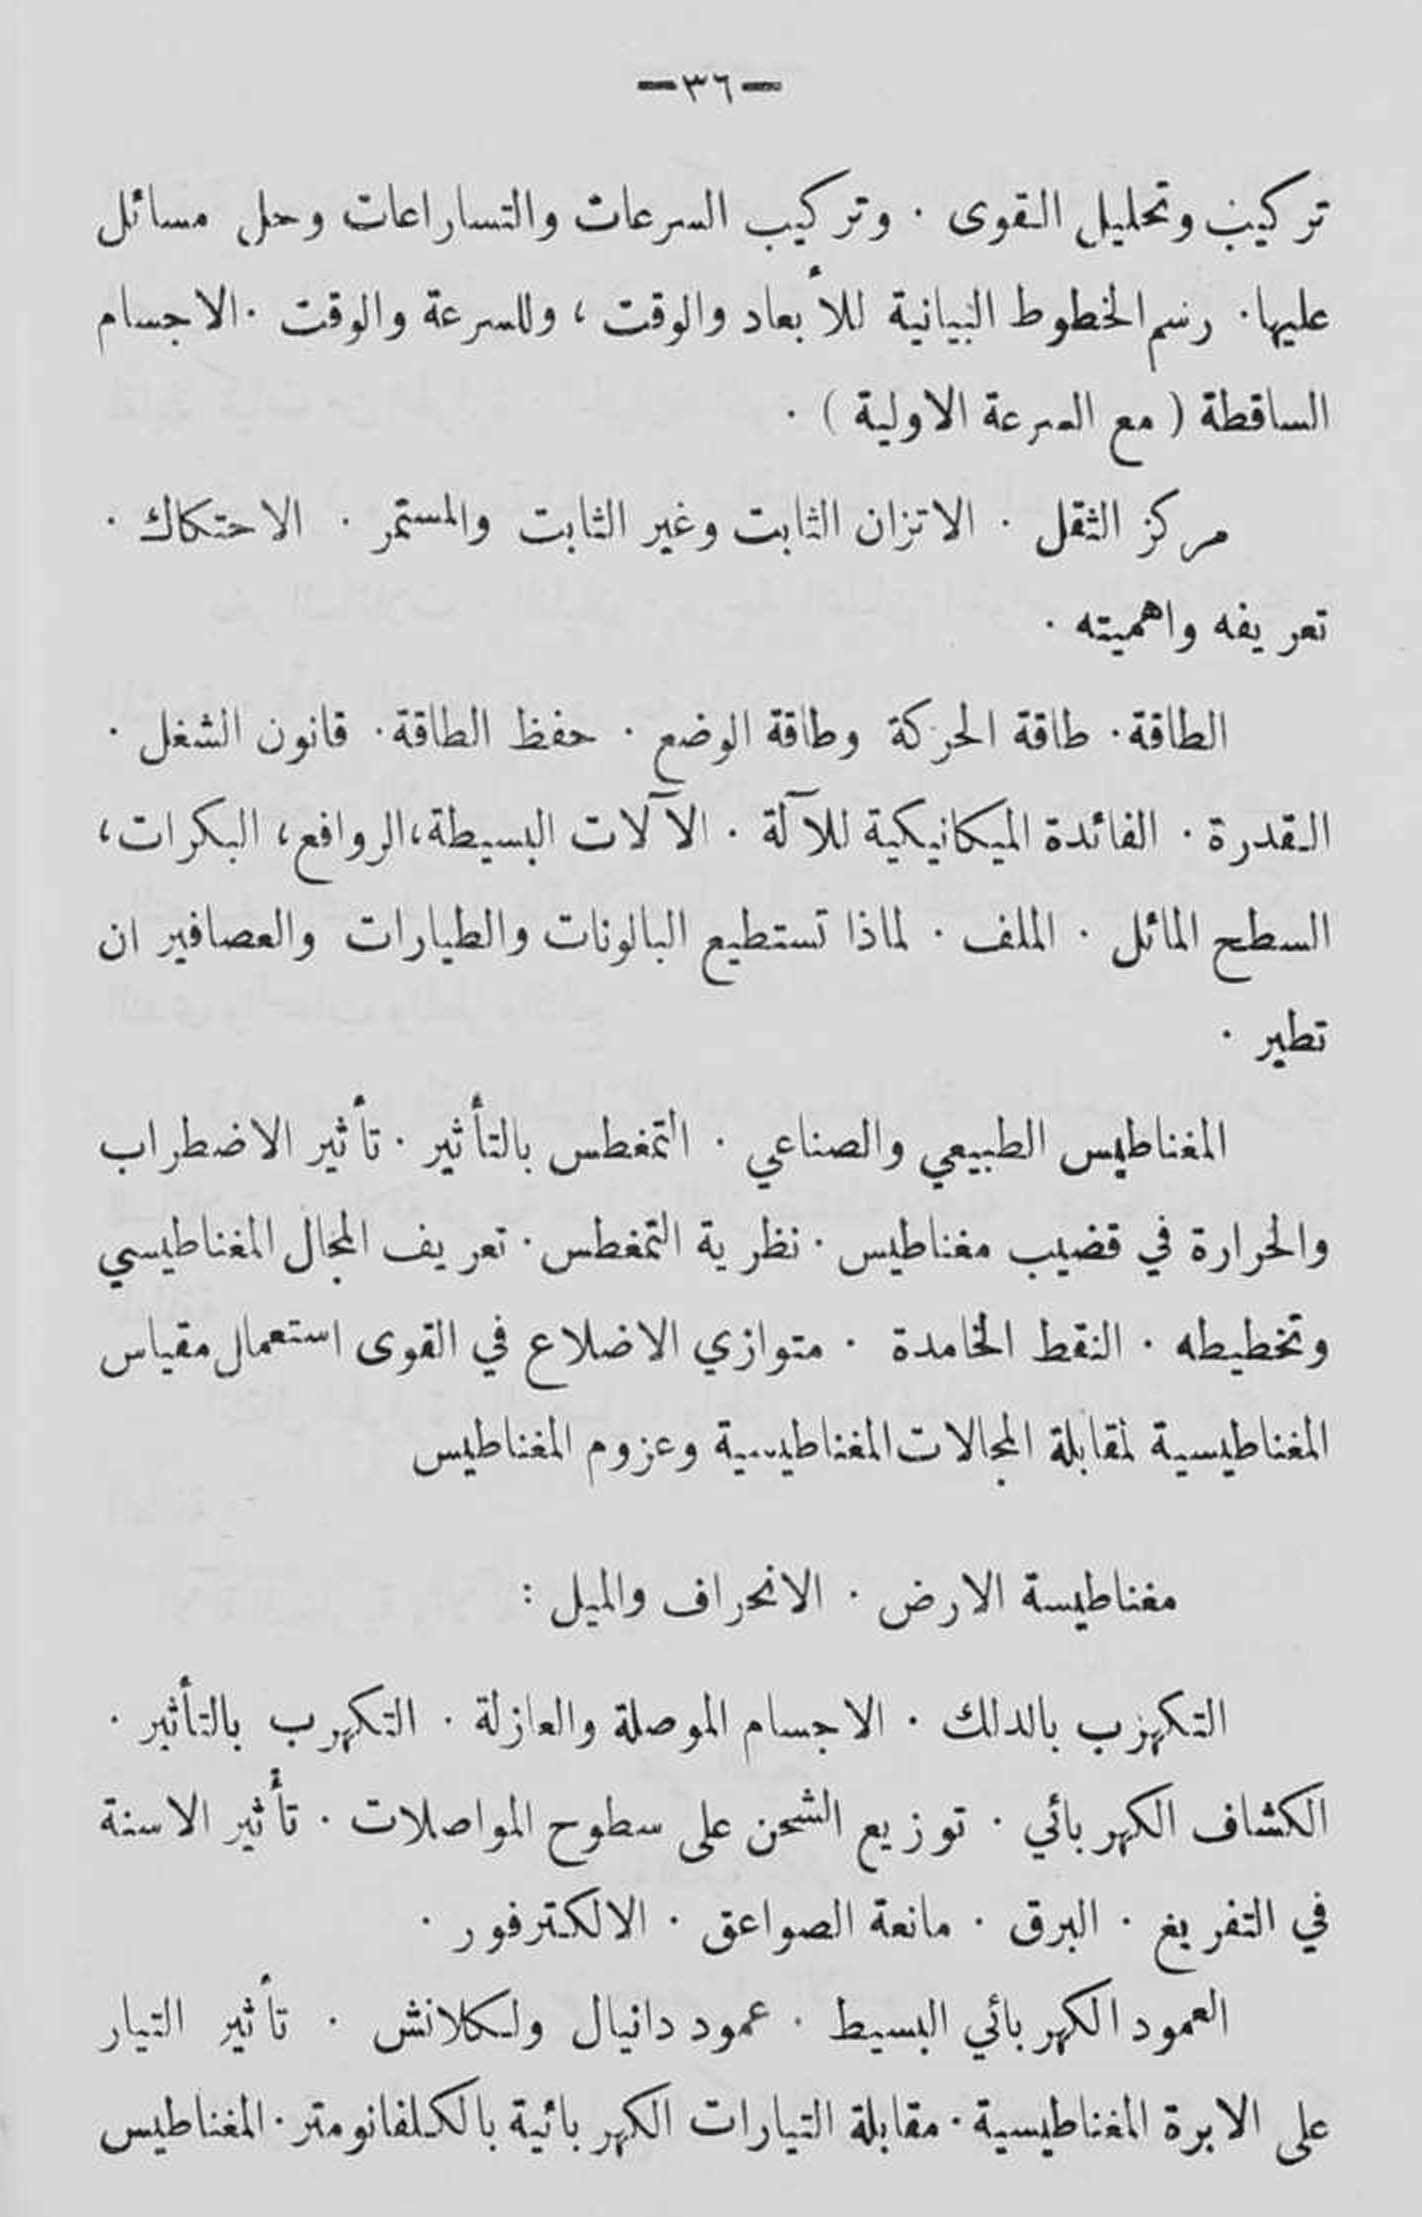 —٣٦—
تركيب وتحليل القوى · وتركيب السرعات والتساراعات وحل مسائل
عليها · رسم الخطوط البيانية للأبعاد والوقت ، وللسرعة والوقت · الاجسام
الساقطة ( مع السرعة الاولية ) ·
مركز الثقل · الاتزان الثابت وغير الثابت والمستمر · الاحتكاك ·
تعريفه واهميته ·
الطاقة · طاقة الحركة وطاقة الوضع · حفظ الطاقة · قانون الشغل ·
القدرة · الفائدة الميكانيكية للآلة · الآلات البسيطة، الروافع، البكرات،
السطح المائل · الملف · لماذا تستطيع البالونات والطيارات والعصافير ان
تطير ·
المغناطيس الطبيعي والصناعي · التمغطس بالتأثير · تأثير الاضطراب
والحرارة في قضيب مغناطيس · نظرية التمغطس · تعريف المجال المغناطيسي
وتخطيطه · النقط الخامدة · متوازي الاضلاع في القوى استعمال مقياس
المغناطيسية لمقابلة المجالات المغناطيسية وعزوم المغناطيس
مغناطيسة الارض · الانحراف والميل :
التكهرب بالدلك · الاجسام الموصلة والعازلة · التكهرب بالتأثير ·
الكشاف الكهربائي · توزيع الشحن على سطوح المواصلات · تأثير الاسنة
في التفريغ · البرق · مانعة الصواعق · الالكترفور ·
العمود الكهربائي البسيط · عمود دانيال ولكلانش · تأثير التيار
على الابرة المغناطيسية · مقابلة التيارات الكهربائية بالكلفانومتر · المغناطيس